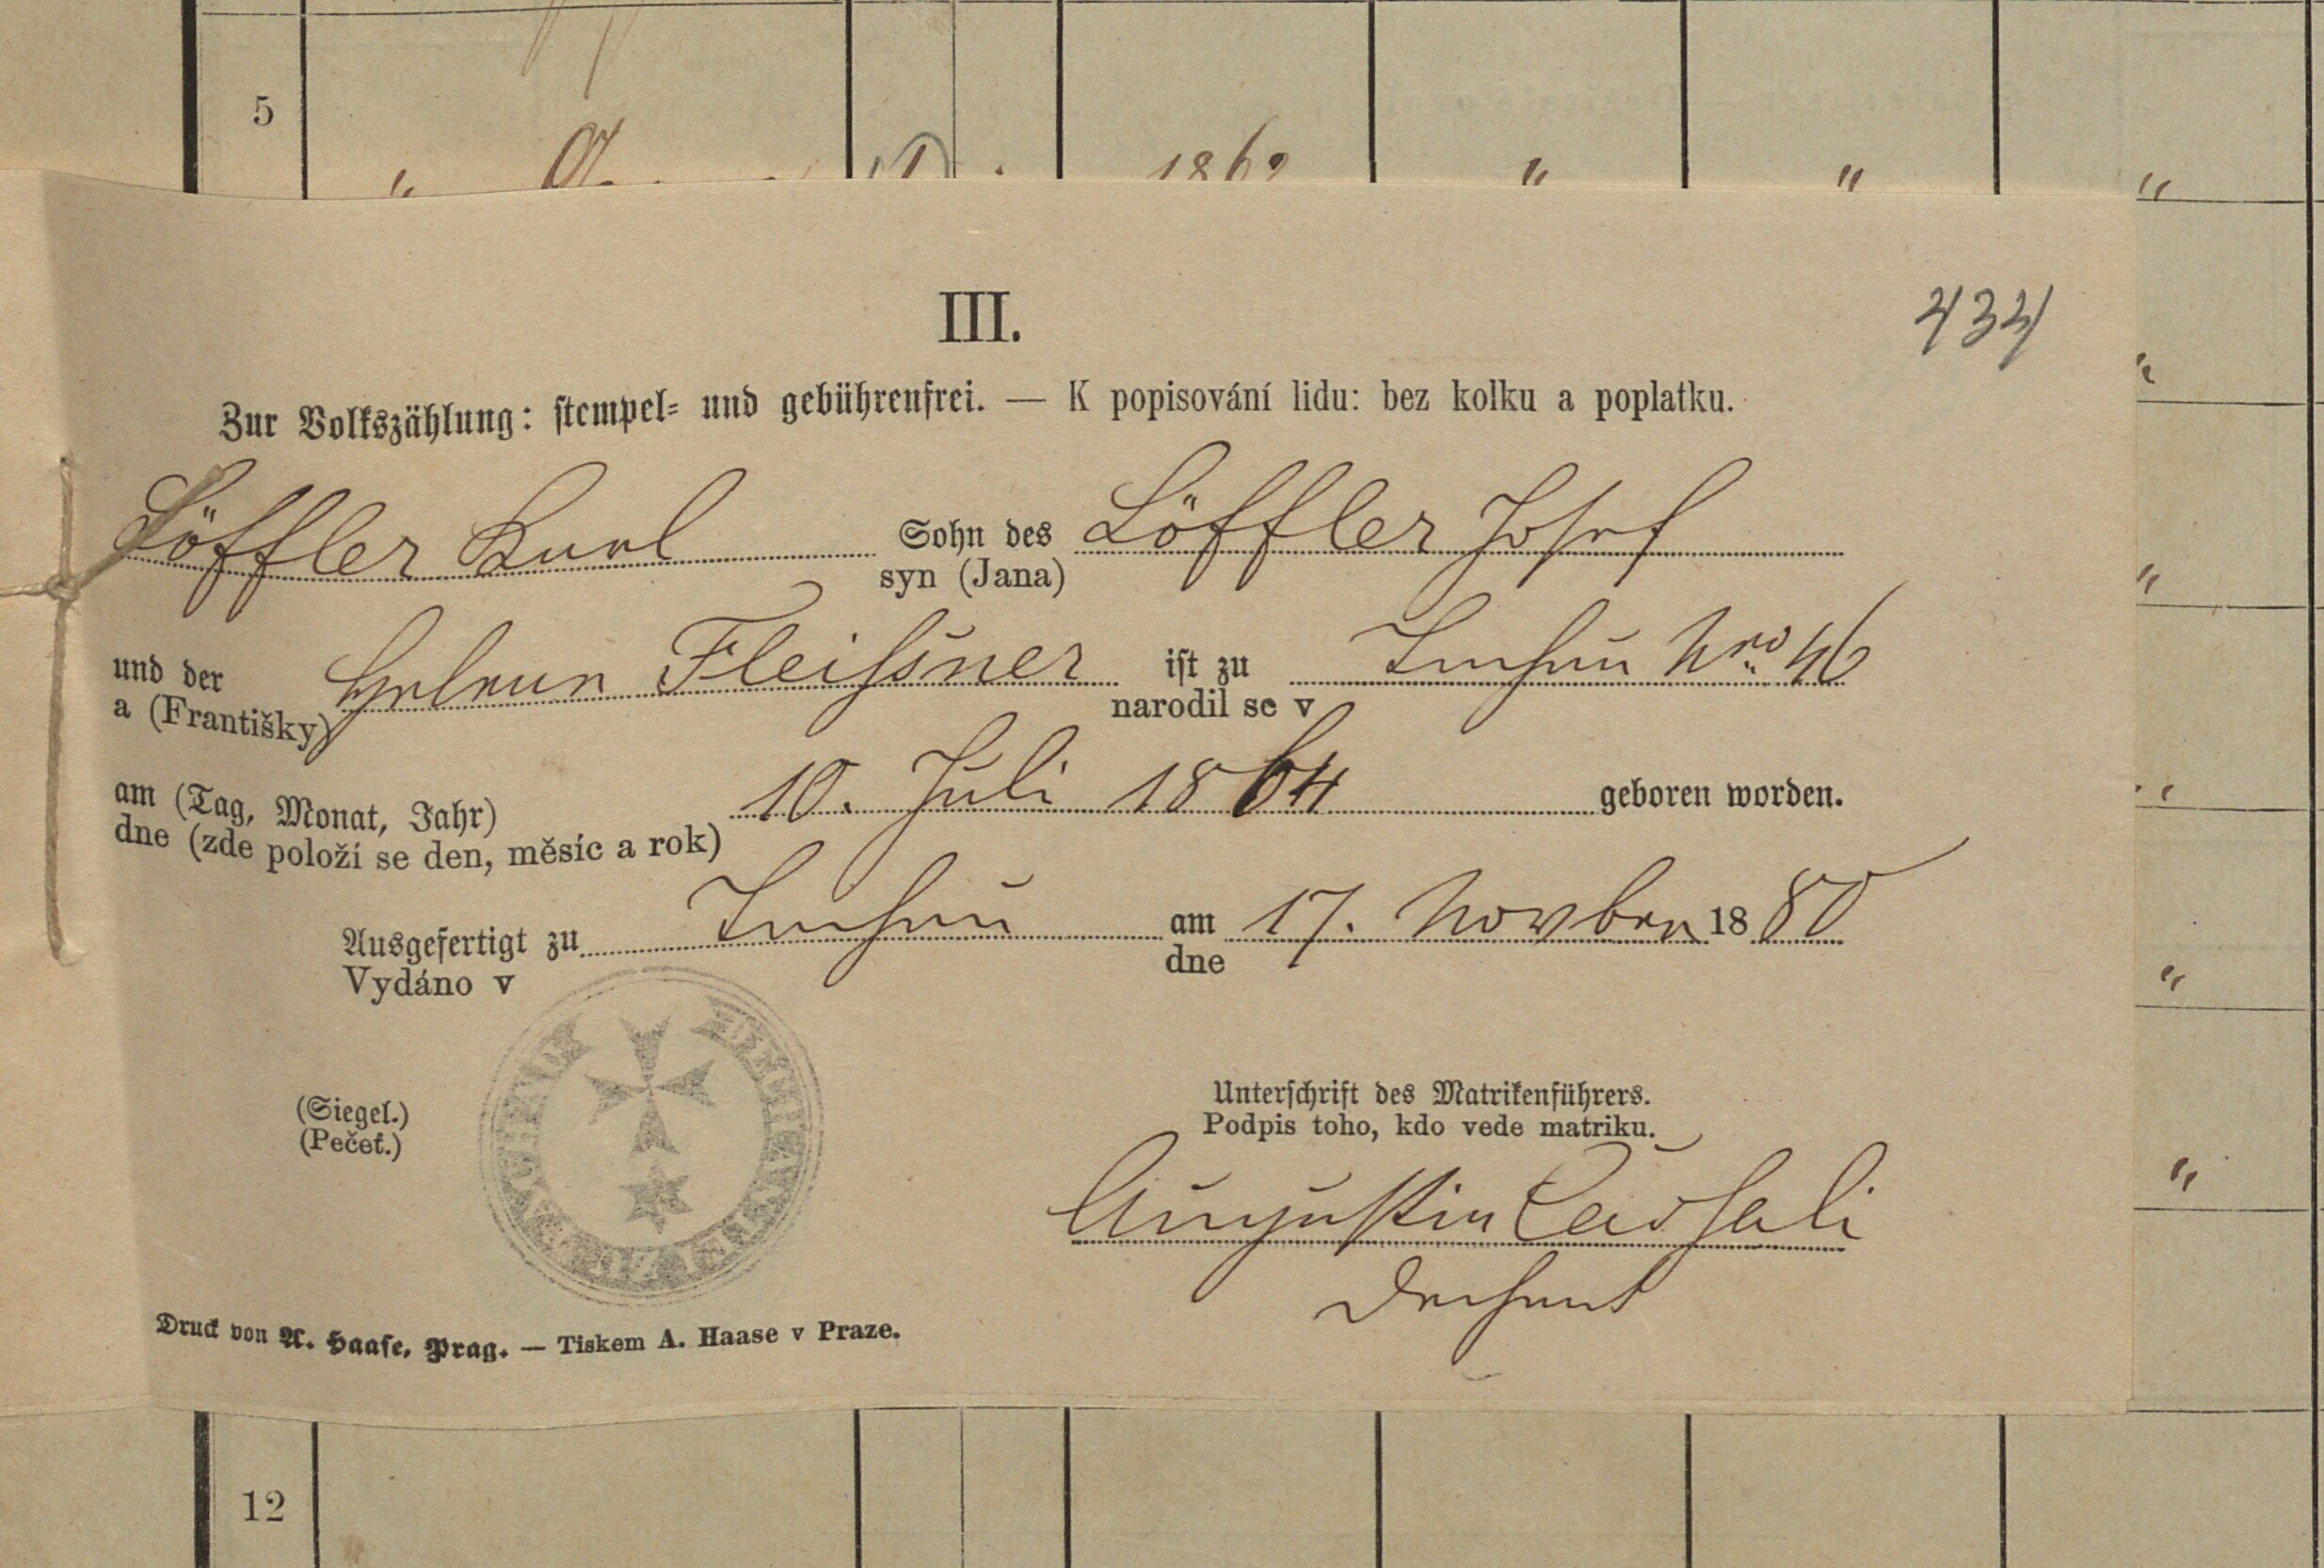 5
" 1869 " " "
III.
434
Zur Volkszählung: stempel- und gebührenfrei. — K popisování lidu: bez kolku a poplatku.
Löffler Karl Sohn des Löffler Josef
syn (Jana)
und der Helena Fleißner ist zu Tachau Nro 46
a (Františky) narodil se v
am (Tag, Monat, Jahr) 10. Juli 1864 geboren worden.
dne (zde položí se den, měsíc a rok)
Ausgefertigt zu Tachau am 17. Novber 1880
Vydáno v dne
(Siegel.)
(Pečeť.)
Unterschrift des Matrikenführers.
Podpis toho, kdo vede matriku.
Augustin
Dechant
Druck von A. Haase, Prag. — Tiskem A. Haase v Praze.
12